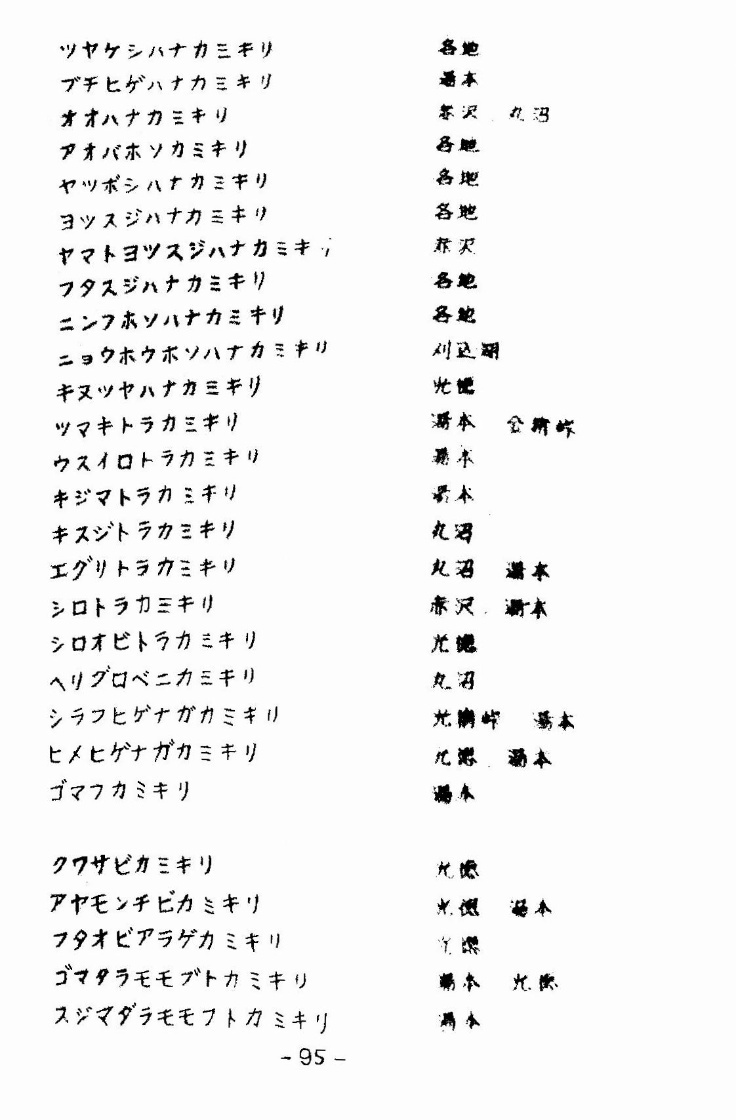 ツヤケシハナカミキリ 各地
ブチヒゲハナカミキリ 湯本
オオハナカミキリ 赤沢 丸沼
アオバホソカミキリ 各地
ヤツボシハナカミキリ 各地
ヨツスジハナカミキリ 各地
ヤマトヨツスジハナカミキリ 赤沢
フタスジハナカミキリ 各地
ニンフホソハナカミキリ 各地
ニョウホウホソハナカミキリ 刈込湖
キヌツヤハナカミキリ 光徳
ツマキトラカミキリ 湯本 金精峠
ウスイロトラカミキリ 湯本
キジマトラカミキリ 湯本
キスジトラカミキリ 丸沼
エグリトラカミキリ 丸沼 湯本
シロトラカミキリ 赤沢 湯本
シロオビトラカミキリ 光徳
ヘリグロベニカミキリ 丸沼
シラフヒゲナガカミキリ 湯本
ヒメヒゲナガカミキリ 光徳 湯本
ゴマフカミキリ 湯本
クワサビカミキリ 光徳
アヤモンチビカミキリ 光徳 湯本
フタオビアラゲカミキリ 光徳
ゴマダラモモブトカミキリ 湯本 光徳
スジマダラモモフトカミキリ 湯本
- 95 -